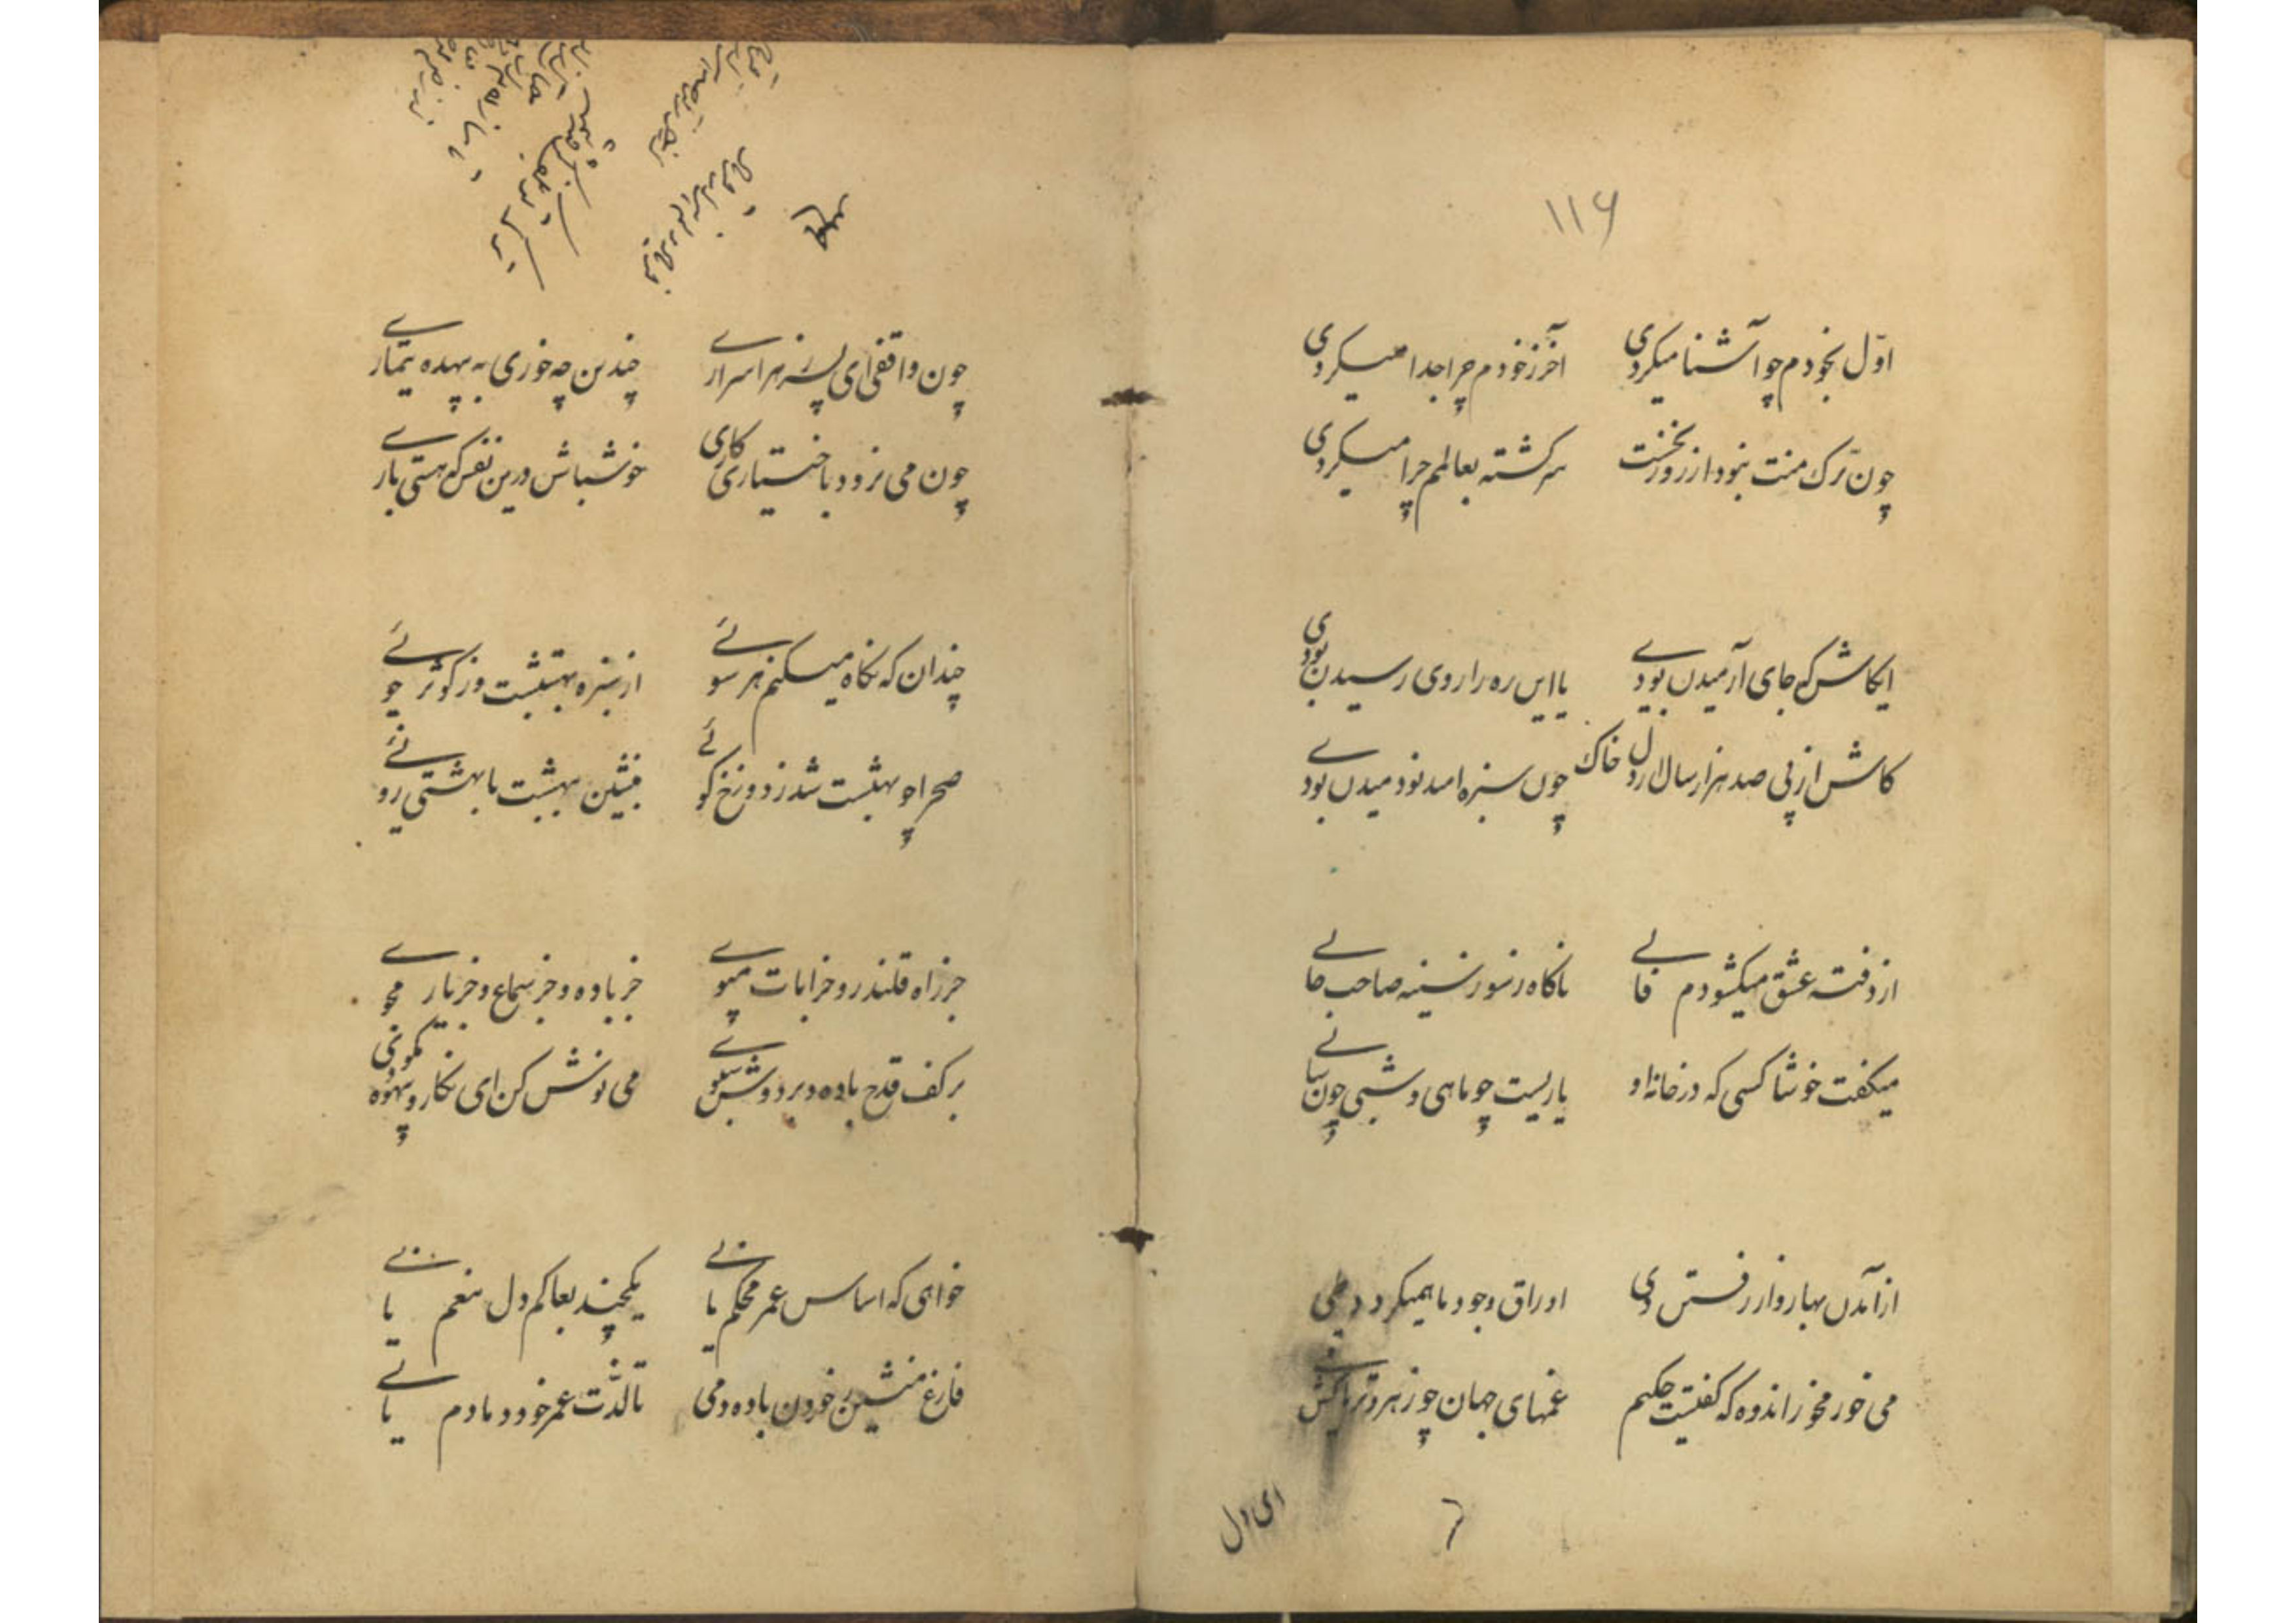 ۱۱۶
اوّل بخودم چو آشنا میکردی آخر ز خودم چرا جدا میکردی
چون ترک منت نبود از روز نخست سرگشته بعالمم چرا میکردی
ایکاش که جای آرمیدن بودے یا این ره را روی رسیدن بودی
کاش از پی صد هزار سال از دل خاک چون سبزه امید نو دمیدن بودے
از دفتر عشق میکشودم فالے ناکاه ز سوز سینه صاحب حالے
میکفت خوشا کسی که در خانه او یاریست چو ماهی و شبی چون سالے
از آمدن بهار و از رفتن دی اوراق وجود ما همیکردد طی
می خور مخور اندوه که کفتست حکیم غمهای جهان چو زهر و تریاکش مے
ای دل
چون واقفی ای پسر ز هر اسرارے چندین چه خوری به بیهده تیمارے
چون می نرود باختیاری کاری خوشباش درین نفس که هستی بارے
چندان که نکاه میکنم هر سوئے از سبزه بهشتست وز کوثر جوئے
صحرا چو بهشت شد ز دوزخ کوئے بنشین ببهشت با بهشتی روئے
جز راه قلندر و خرابات مپوے جز باده و جز سماع و جز یار مجوے
بر کف قدح باده و بر دوش سبوے می نوش کن ای نکار و بیهوده مکوی
خواهی که اساس عمر محکم یابے یکچند بعالم دل بیغم یابے
فارغ منشین ز خوردن باده و می تا لذّت عمر خود دمادم یابے